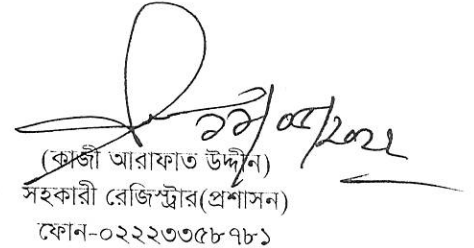 (কাজী আরাফাত উদ্দীন)
সহকারী রেজিস্ট্রার(প্রশাসন)
ফোন-০২২২৩৩৫৮৭৮১